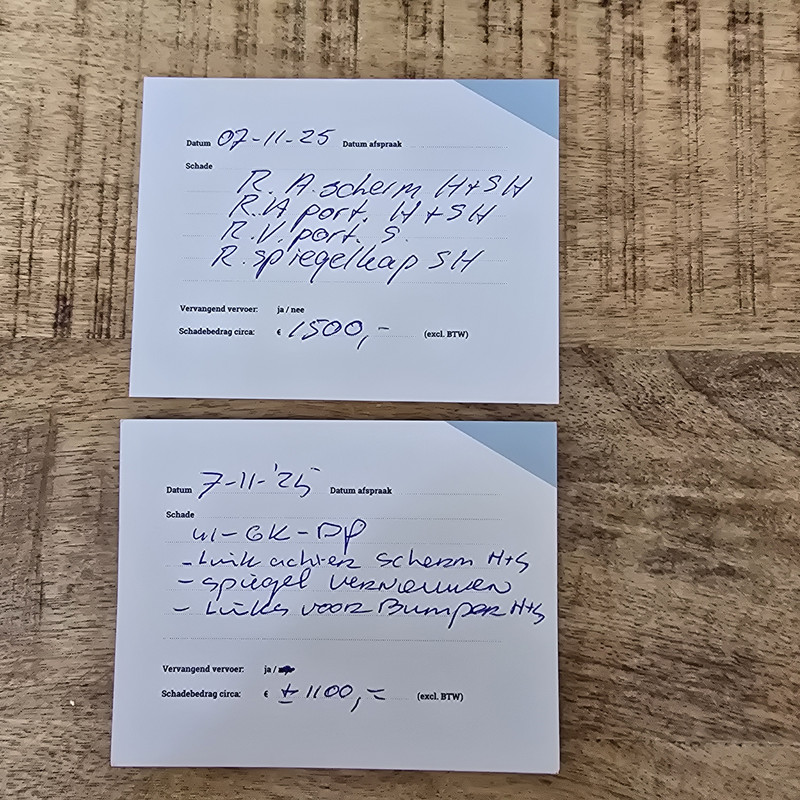 Datum 07-11-25 Datum afspraak
Schade
R. A. scherm H+SH
R. A port. H + SH
R. V. port. S.
R. spiegelkap SH
Vervangend vervoer: ja / nee
Schadebedrag circa: € 1500,- (excl. BTW)
Datum 7-11-'25 Datum afspraak
Schade
-GK-DP
- Link achter scherm H+S
- spiegel vernieuwen
- Links voor Bumper H+S
Vervangend vervoer: ja /
Schadebedrag circa: € ± 1100,= (excl. BTW)